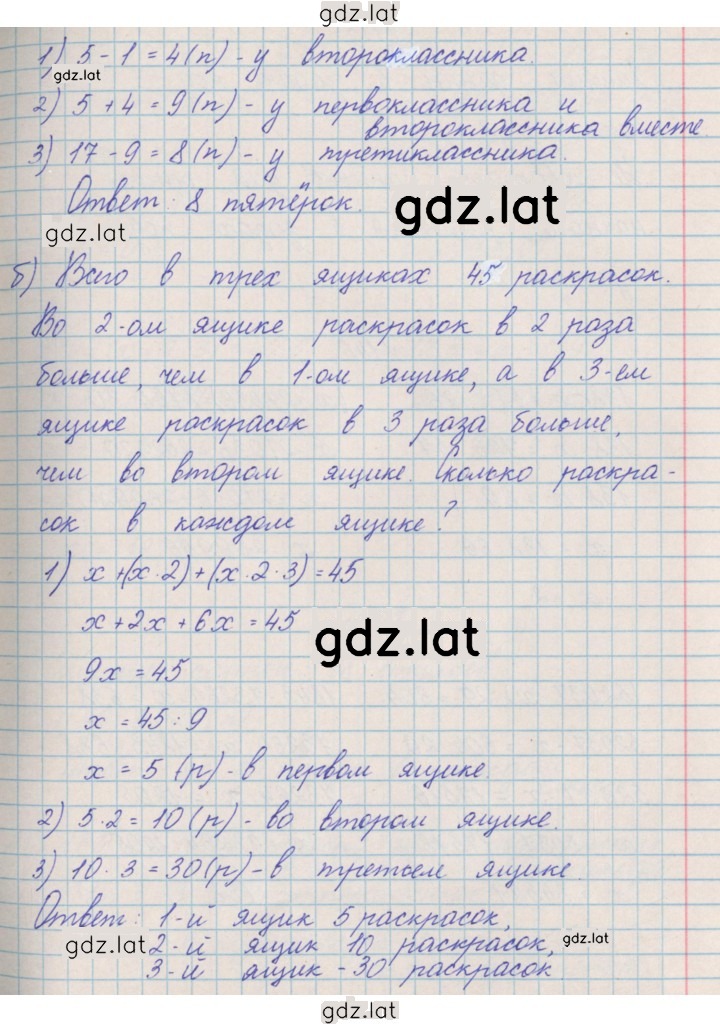 gdz.lat
1) 5 - 1 = 4 (п) - у второклассника.
gdz.lat
2) 5 + 4 = 9 (п) - у первоклассника и
второклассника вместе.
3) 17 - 9 = 8 (п) - у третиклассника.
Ответ: 8 пятёрок.
gdz.lat
gdz.lat
б) Всего в трех ящиках 45 раскрасок.
Во 2-ом ящике раскрасок в 2 раза
больше, чем в 1-ом ящике, а в 3-ем
ящике раскрасок в 3 раза больше,
чем во втором ящике. Сколько раскра-
сок в каждом ящике?
1) x + (x · 2) + (x · 2 · 3) = 45
x + 2x + 6x = 45
gdz.lat
9x = 45
x = 45 : 9
x = 5 (р) - в первом ящике.
2) 5 · 2 = 10 (р) - во втором ящике.
3) 10 · 3 = 30 (р) - в третьем ящике.
Ответ: 1-й ящик 5 раскрасок,
gdz.lat
2-й ящик 10 раскрасок,
gdz.lat
3-й ящик - 30 раскрасок.
gdz.lat